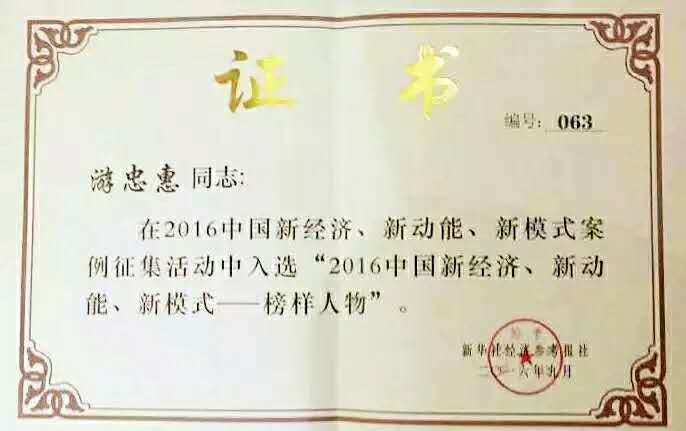 证 书
编号: 063
游忠惠 同志:
在2016中国新经济、新动能、新模式案
例征集活动中入选“2016中国新经济、新动
能、新模式——榜样人物”。
新华社经济参考报社
二〇一六年九月